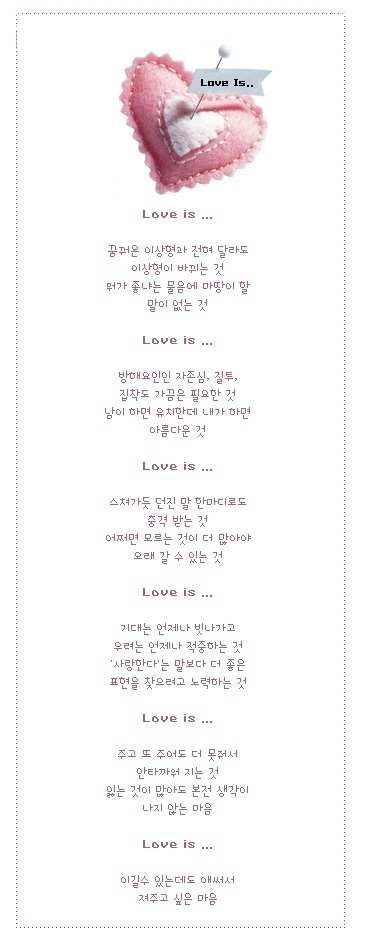 Love Is..
Love is ...
꿈꿔온 이상형과 전혀 달라도
이상형이 바뀌는 것
뭐가 좋냐는 물음에 마땅이 할
말이 없는 것
Love is ...
방해요인인 자존심, 질투,
집착도 가끔은 필요한 것
남이 하면 유치한데 내가 하면
아름다운 것
Love is ...
스쳐가듯 던진 말 한마디로도
충격 받는 것
어쩌면 모르는 것이 더 많아야
오래 갈 수 있는 것
Love is ...
기대는 언제나 빗나가고
우려는 언제나 적중하는 것
'사랑한다'는 말보다 더 좋은
표현을 찾으려고 노력하는 것
Love is ...
주고 또 주어도 더 못줘서
안타까워 지는 것
잃는 것이 많아도 본전 생각이
나지 않는 마음
Love is ...
이길수 있는데도 애써서
져주고 싶은 마음